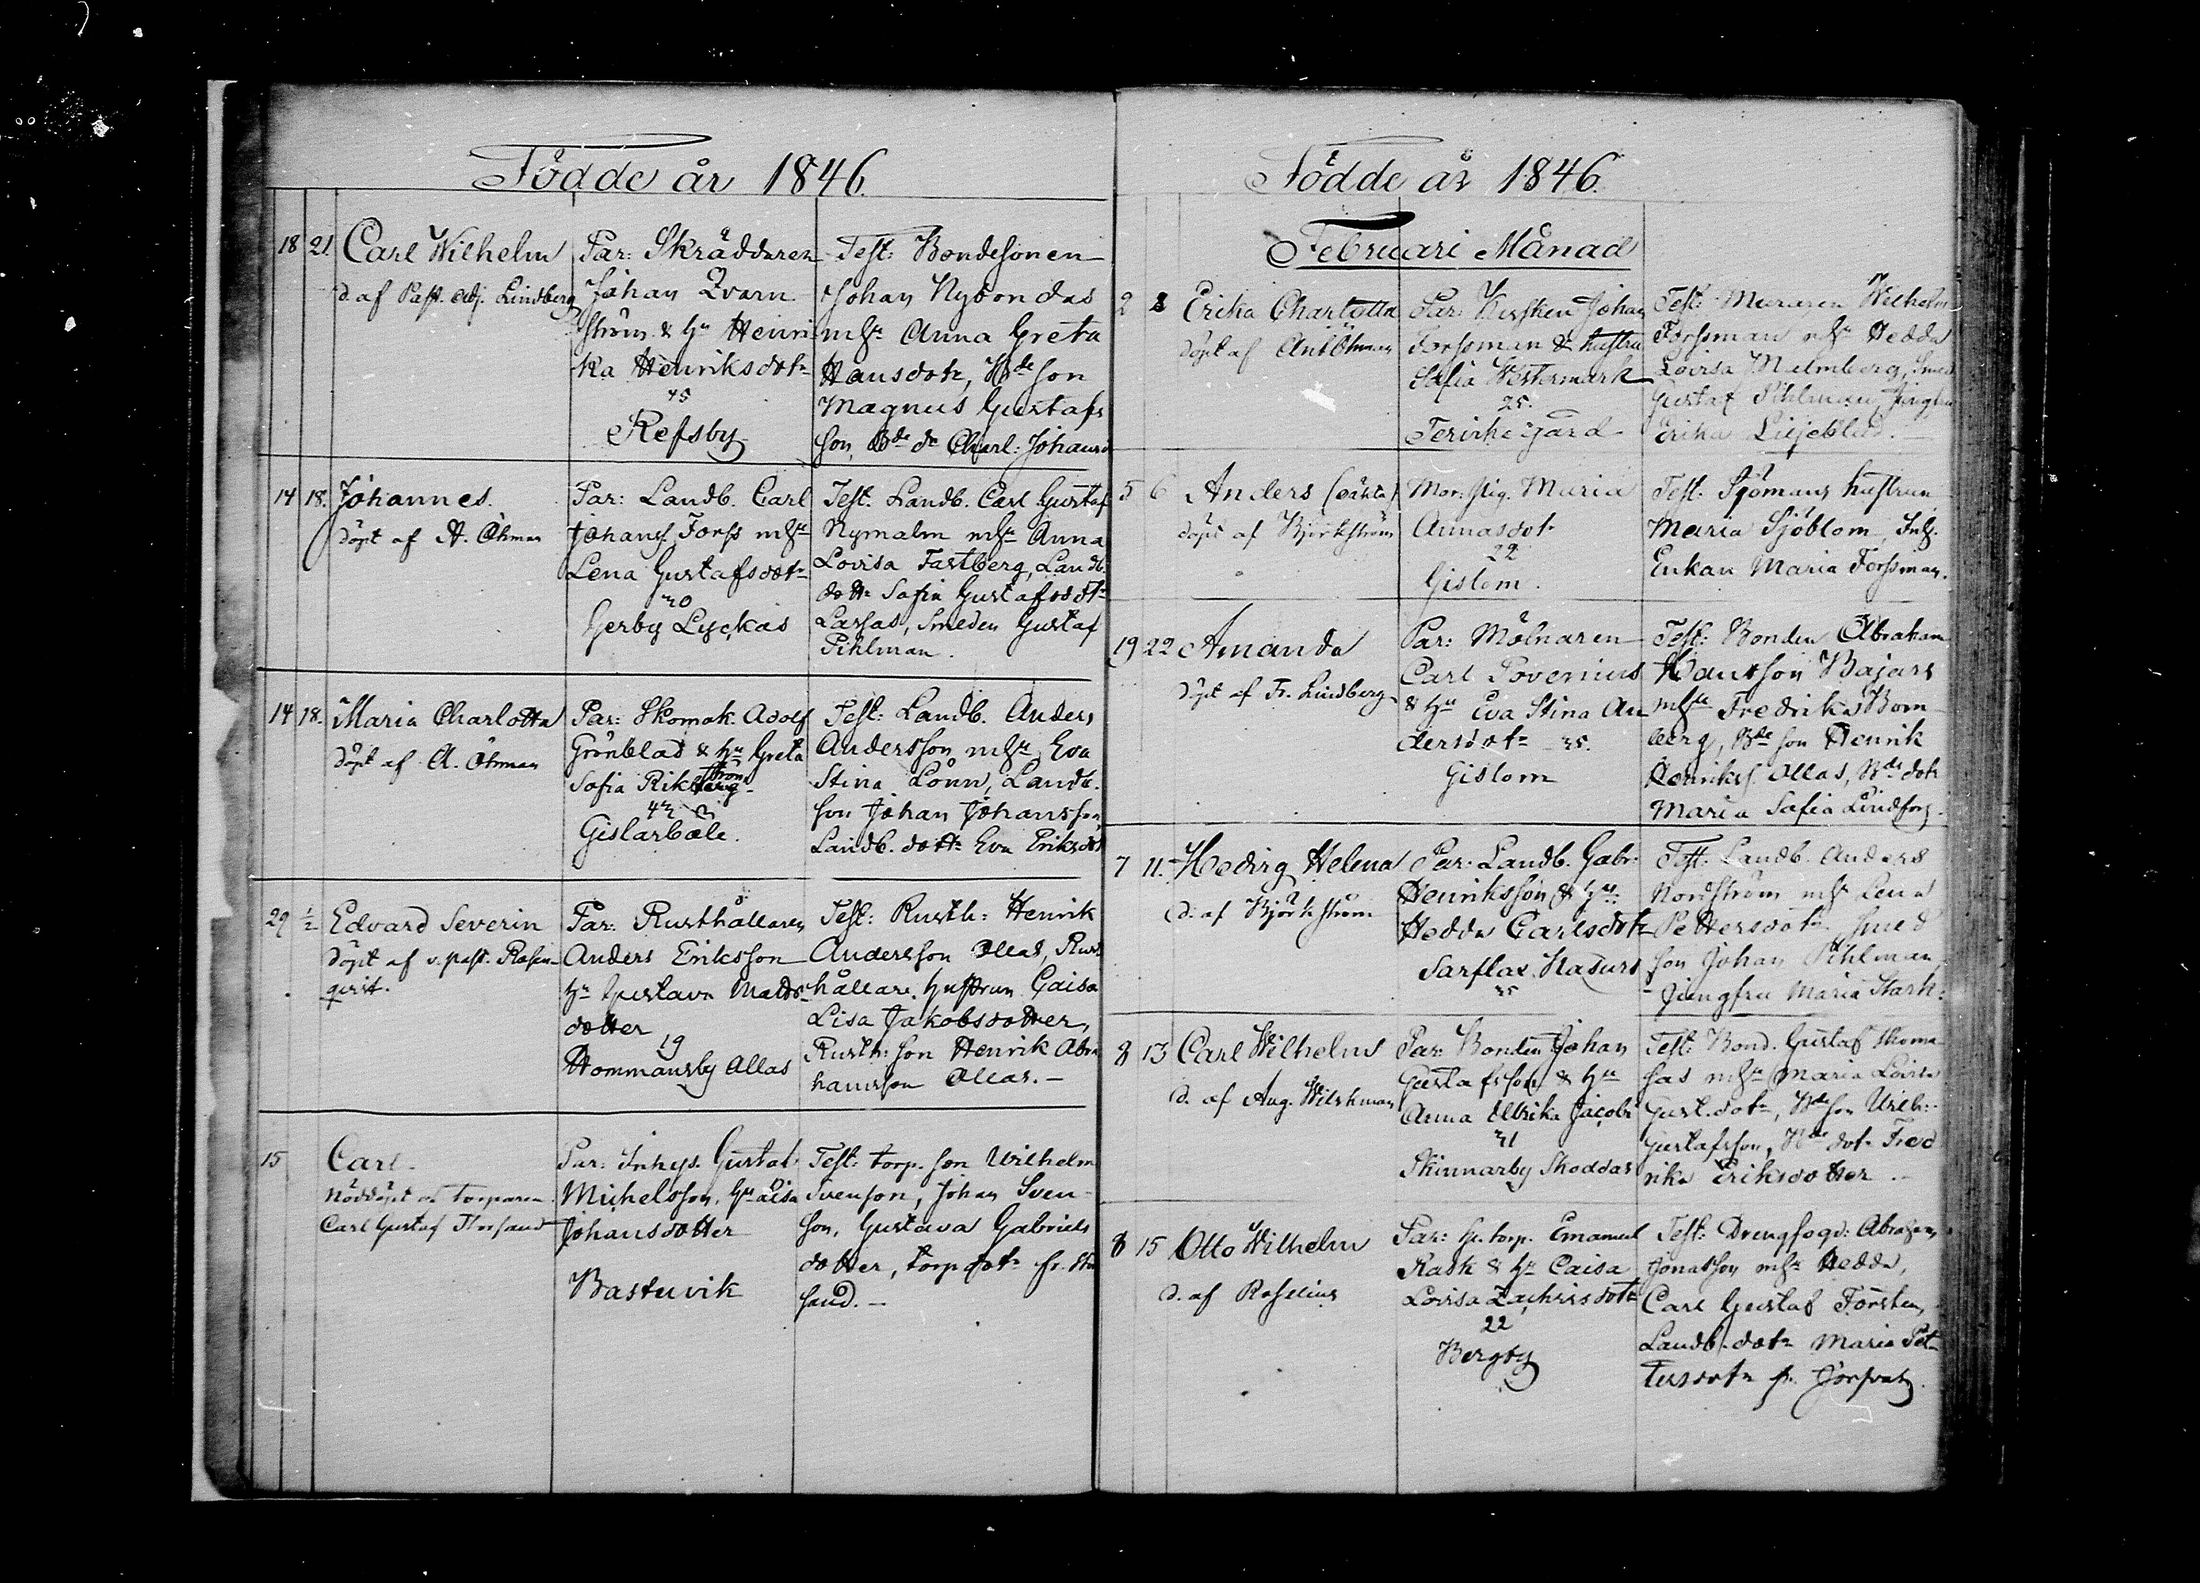 Födde år 1846.
18 21. Carl Wilhelm
d. af Past. Adj. Lindberg
Par: Skräddaren
Johan Qvarn
ström & hu Henri
ka Henriksdotr
45
Refsby
Test: Bondesonen
Johan Nybondas
mhu Anna Greta
Hansdotr, Bde son
Magnus Gustafs
son, Bde dr Charl: Johansd
14 18. Johannes.
döpt af A. Öhman
Par: Landb. Carl
Johanss. Forss mhu
Lena Gustafsdotr
30
Gerby Lyckas
Test. Landb. Carl Gustaf
Nymalm mhu Anna
Lovisa Fastberg, Landb.
dottr Sofia Gustafsdotr
Lassas, Smeden Gustaf
Pihlman.
14 18. Maria Charlotta
döpt af A. Öhman
Par: Skomak. Adolf
Grönblad & hu Greta
Sofia Rikström
43
Gislarböle.
Test: Landb. Anders
Andersson mhu Eva
Stina Lönn, Landb.
son Johan Johansson,
Landb. dottr Eva Eriksdot
29 1/2 Edvard Severin
döpt af v. past. Rosen-
qvist.
Par: Rusthållaren
Anders Eriksson
hu Gustava Matts-
dotter
19
Hommansby Ollas
Test: Rusth: Henrik
Andersson Ollas, Rust
hållare hustrun Caisa
Lisa Jakobsdotter,
Rusth: son Henrik Abra
hamsson Ollas. —
15 Carl.
nöddöpt af torparen
Carl Gustaf Thorsand
Par: Inhys. Gustaf
Michelsson, hu Lisa
Johansdotter
Bastuvik
Test: torp. son Wilhelm
Svenson, Johan Sven-
son, Gustava Gabriels
dotter, torp dotr fr. Stor
sand. —
Födde år 1846.
Februari Månad
2 8 Erika Charlotta
döpt af Ant Öhman
Par: Kusken Johan
Forssman & hustru
Sofia Westermark
25.
Tervikegård
Test: Muraren Wilhelm
Forssman mhu Hedda
Lovisa Malmberg, Smed
Gustaf Pihlman, Jungfru
Erika Liljeblad. —
5 6 Anders (oäkta)
döpt af Björkström
Mor: pig. Maria
Annasdotr
22
Gislom.
Test. Sjömans hustrun
Maria Sjöblom, Inh.
Enkan Maria Forssman.
19 22 Amanda
döpt af Fr. Lindberg
Par: Mölnaren
Carl Povenius
& hu Eva Stina An
dersdotr 35.
Gislom
Test: Bonden Abraham
Hansson Bajars
mhu Fredrika Bom
berg, Bde son Henrik
Henrikss. Ollas, Bde dotr
Maria Sofia Lindfors.
7 11. Hedvig Helena
d. af Björkström
Par: Landb. Gabr.
Henriksson & hu
Hedda Carlsdotr
Sarflax Hasurs
35
Test: Landb. Anders
Nordström mhu Lena
Pettersdotr Smed
son Johan Pihlman,
Jungfru Maria Stark:
8 13 Carl Wilhelm
d. af Aug. Wirkman
Par: Bonden Johan
Gustafsson & hu
Anna Ulrika Jacobs
31
Skinnarby Skoddas
Test: Bond. Gustaf Thoma
sas mhu Maria Lovisa
Gust. dotr, Bde son Wilh:
Gustafsson, Bde dotr Fred
rika Eriksdotter. —
8 15 Otto Wilhelm
d. af Roselius
Par: Gr. torp. Emanuel
Rask & hu Caisa
Lovisa Zachrisdotr
22
Bergby
Test: Drengfogd: Abraham
Jonasson mhu Hedda,
Carl Gustaf Forsten,
Landb. dotr Maria Pet-
tersdotr fr.